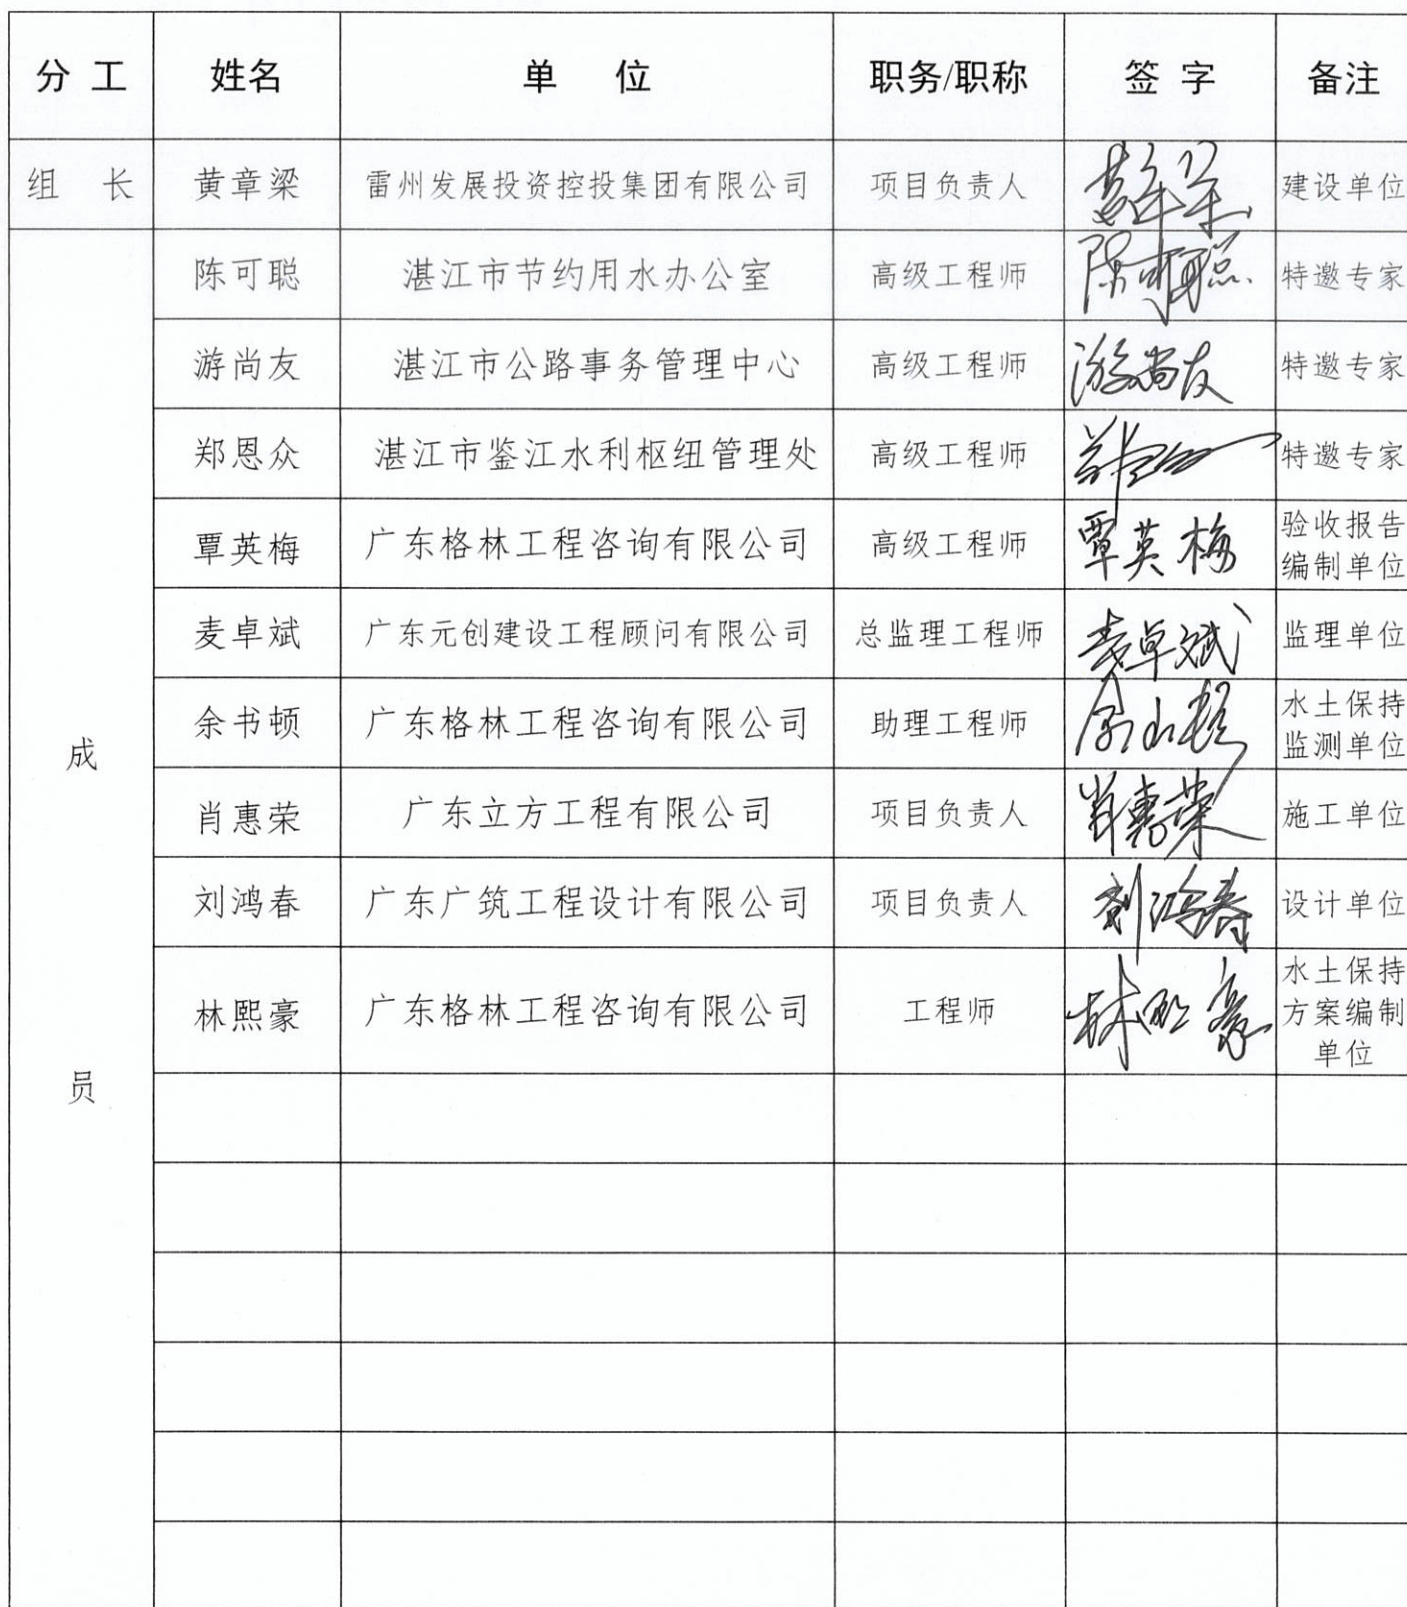 分 工 姓名 单 位 职务/职称 签 字 备注
组 长 黄章梁 雷州发展投资控投集团有限公司 项目负责人 建设单位
陈可聪 湛江市节约用水办公室 高级工程师 陈可聪 特邀专家
游尚友 湛江市公路事务管理中心 高级工程师 游尚友 特邀专家
郑恩众 湛江市鉴江水利枢纽管理处 高级工程师 特邀专家
覃英梅 广东格林工程咨询有限公司 高级工程师 覃英梅 验收报告
编制单位
麦卓斌 广东元创建设工程顾问有限公司 总监理工程师 麦卓斌 监理单位
余书顿 广东格林工程咨询有限公司 助理工程师 水土保持
监测单位
肖惠荣 广东立方工程有限公司 项目负责人 肖惠荣 施工单位
刘鸿春 广东广筑工程设计有限公司 项目负责人 刘鸿春 设计单位
林熙豪 广东格林工程咨询有限公司 工程师 林熙豪 水土保持
方案编制
单位
成
员